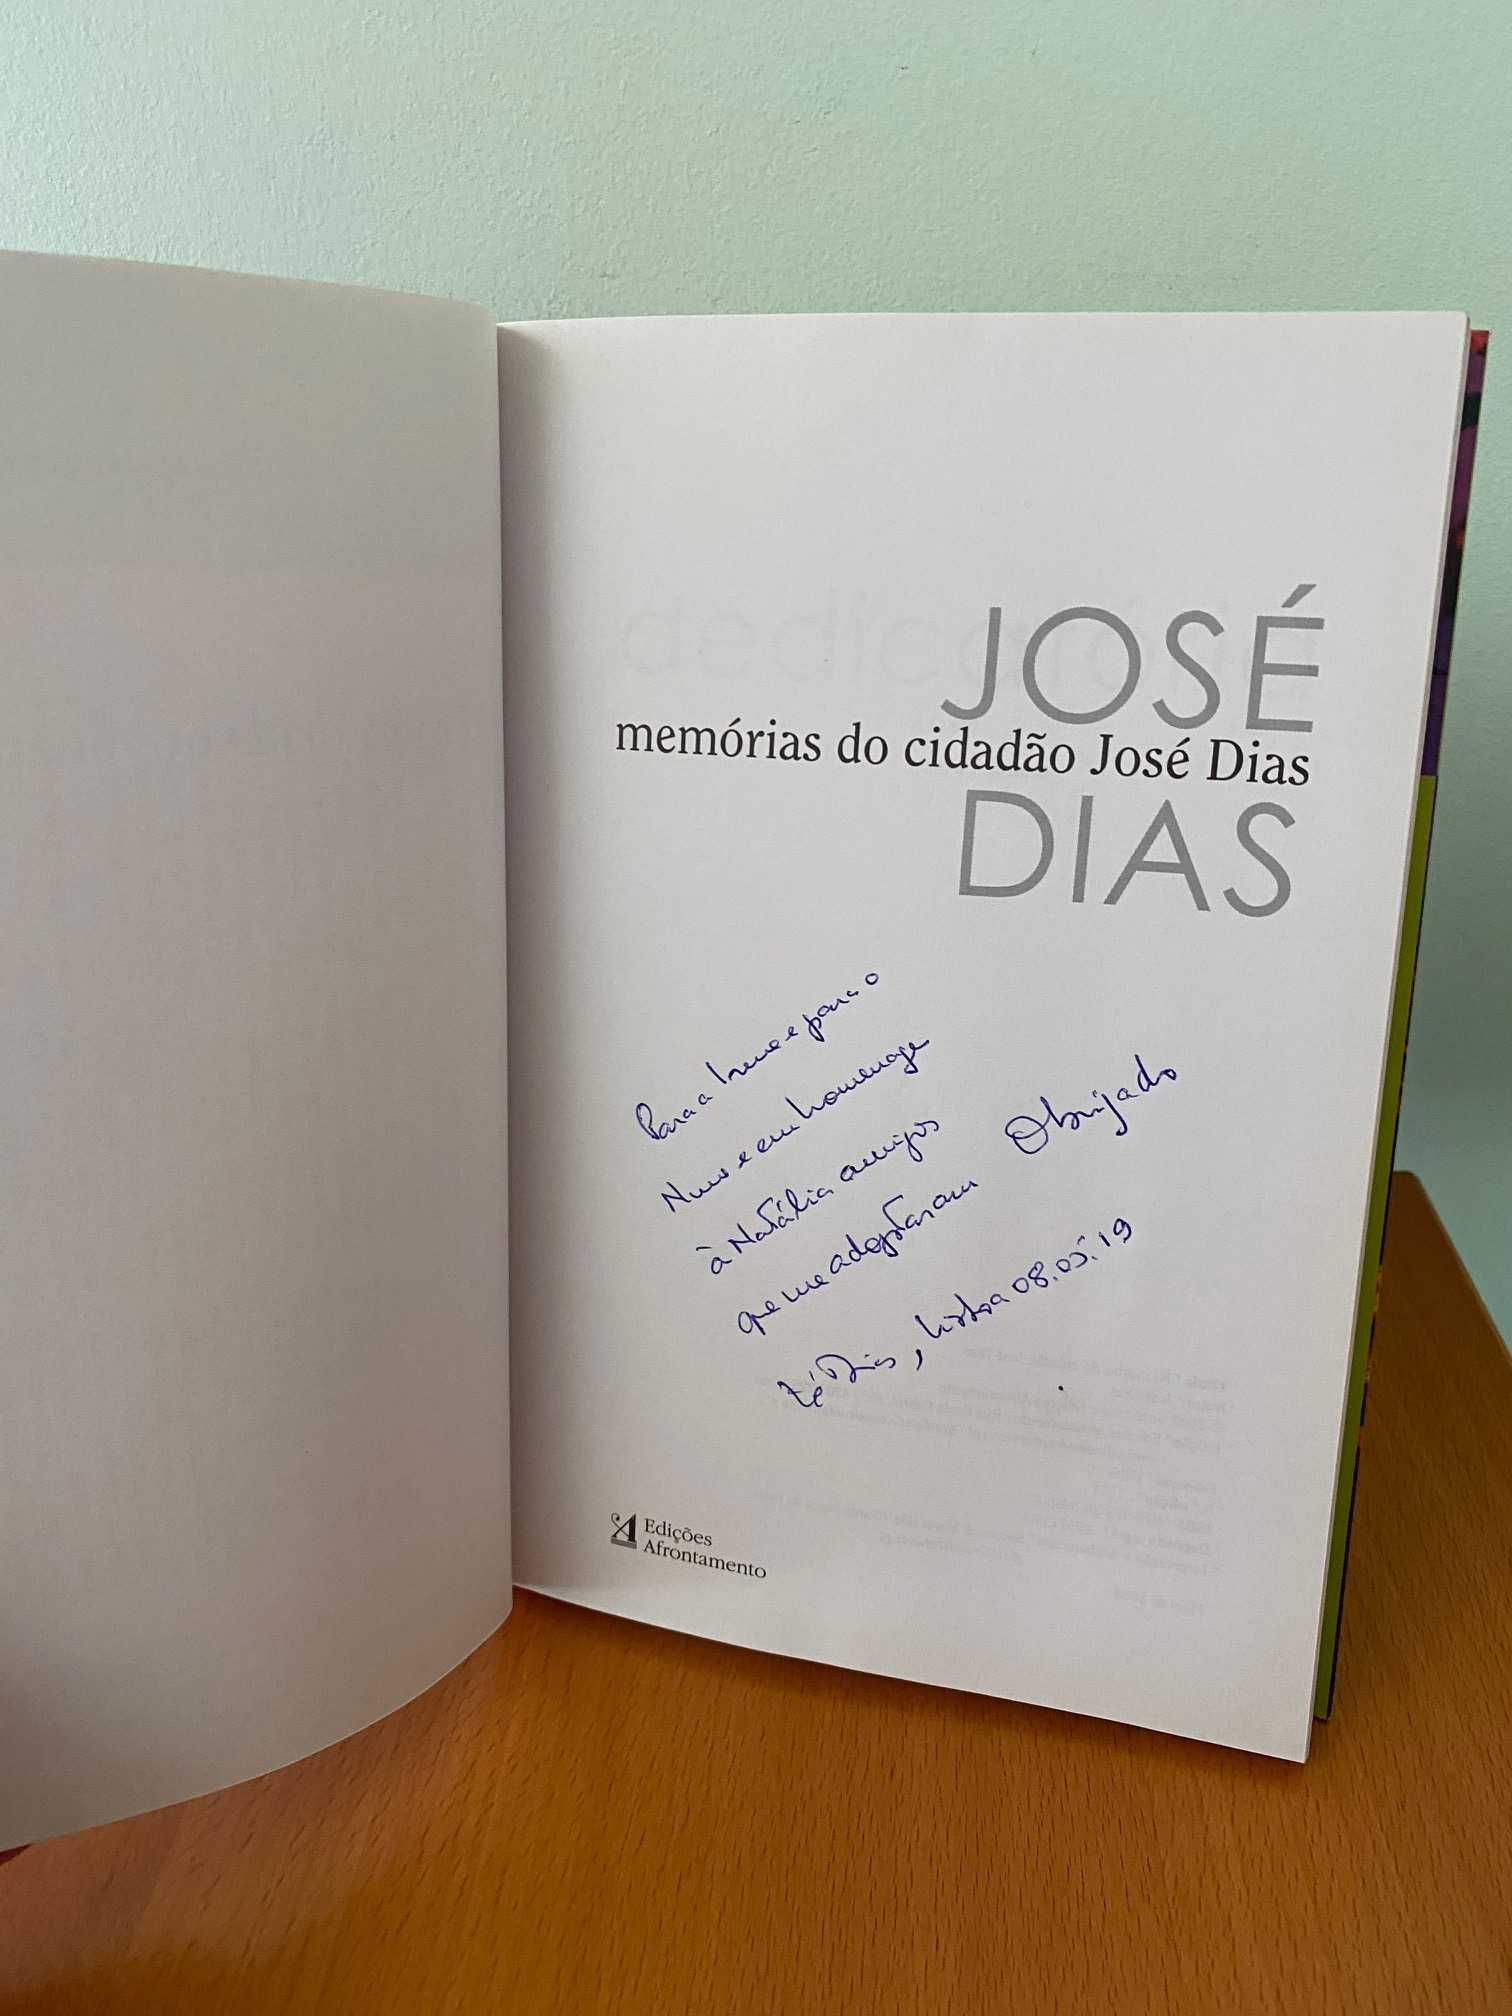 JOSÉ
memórias do cidadão José Dias
DIAS
Para a Irene e para o
Nuno e em homenagem
à Natália amigos
que me adoptaram Obrigado
Zé Dias, Lisboa 08.05.19
Edições
Afrontamento